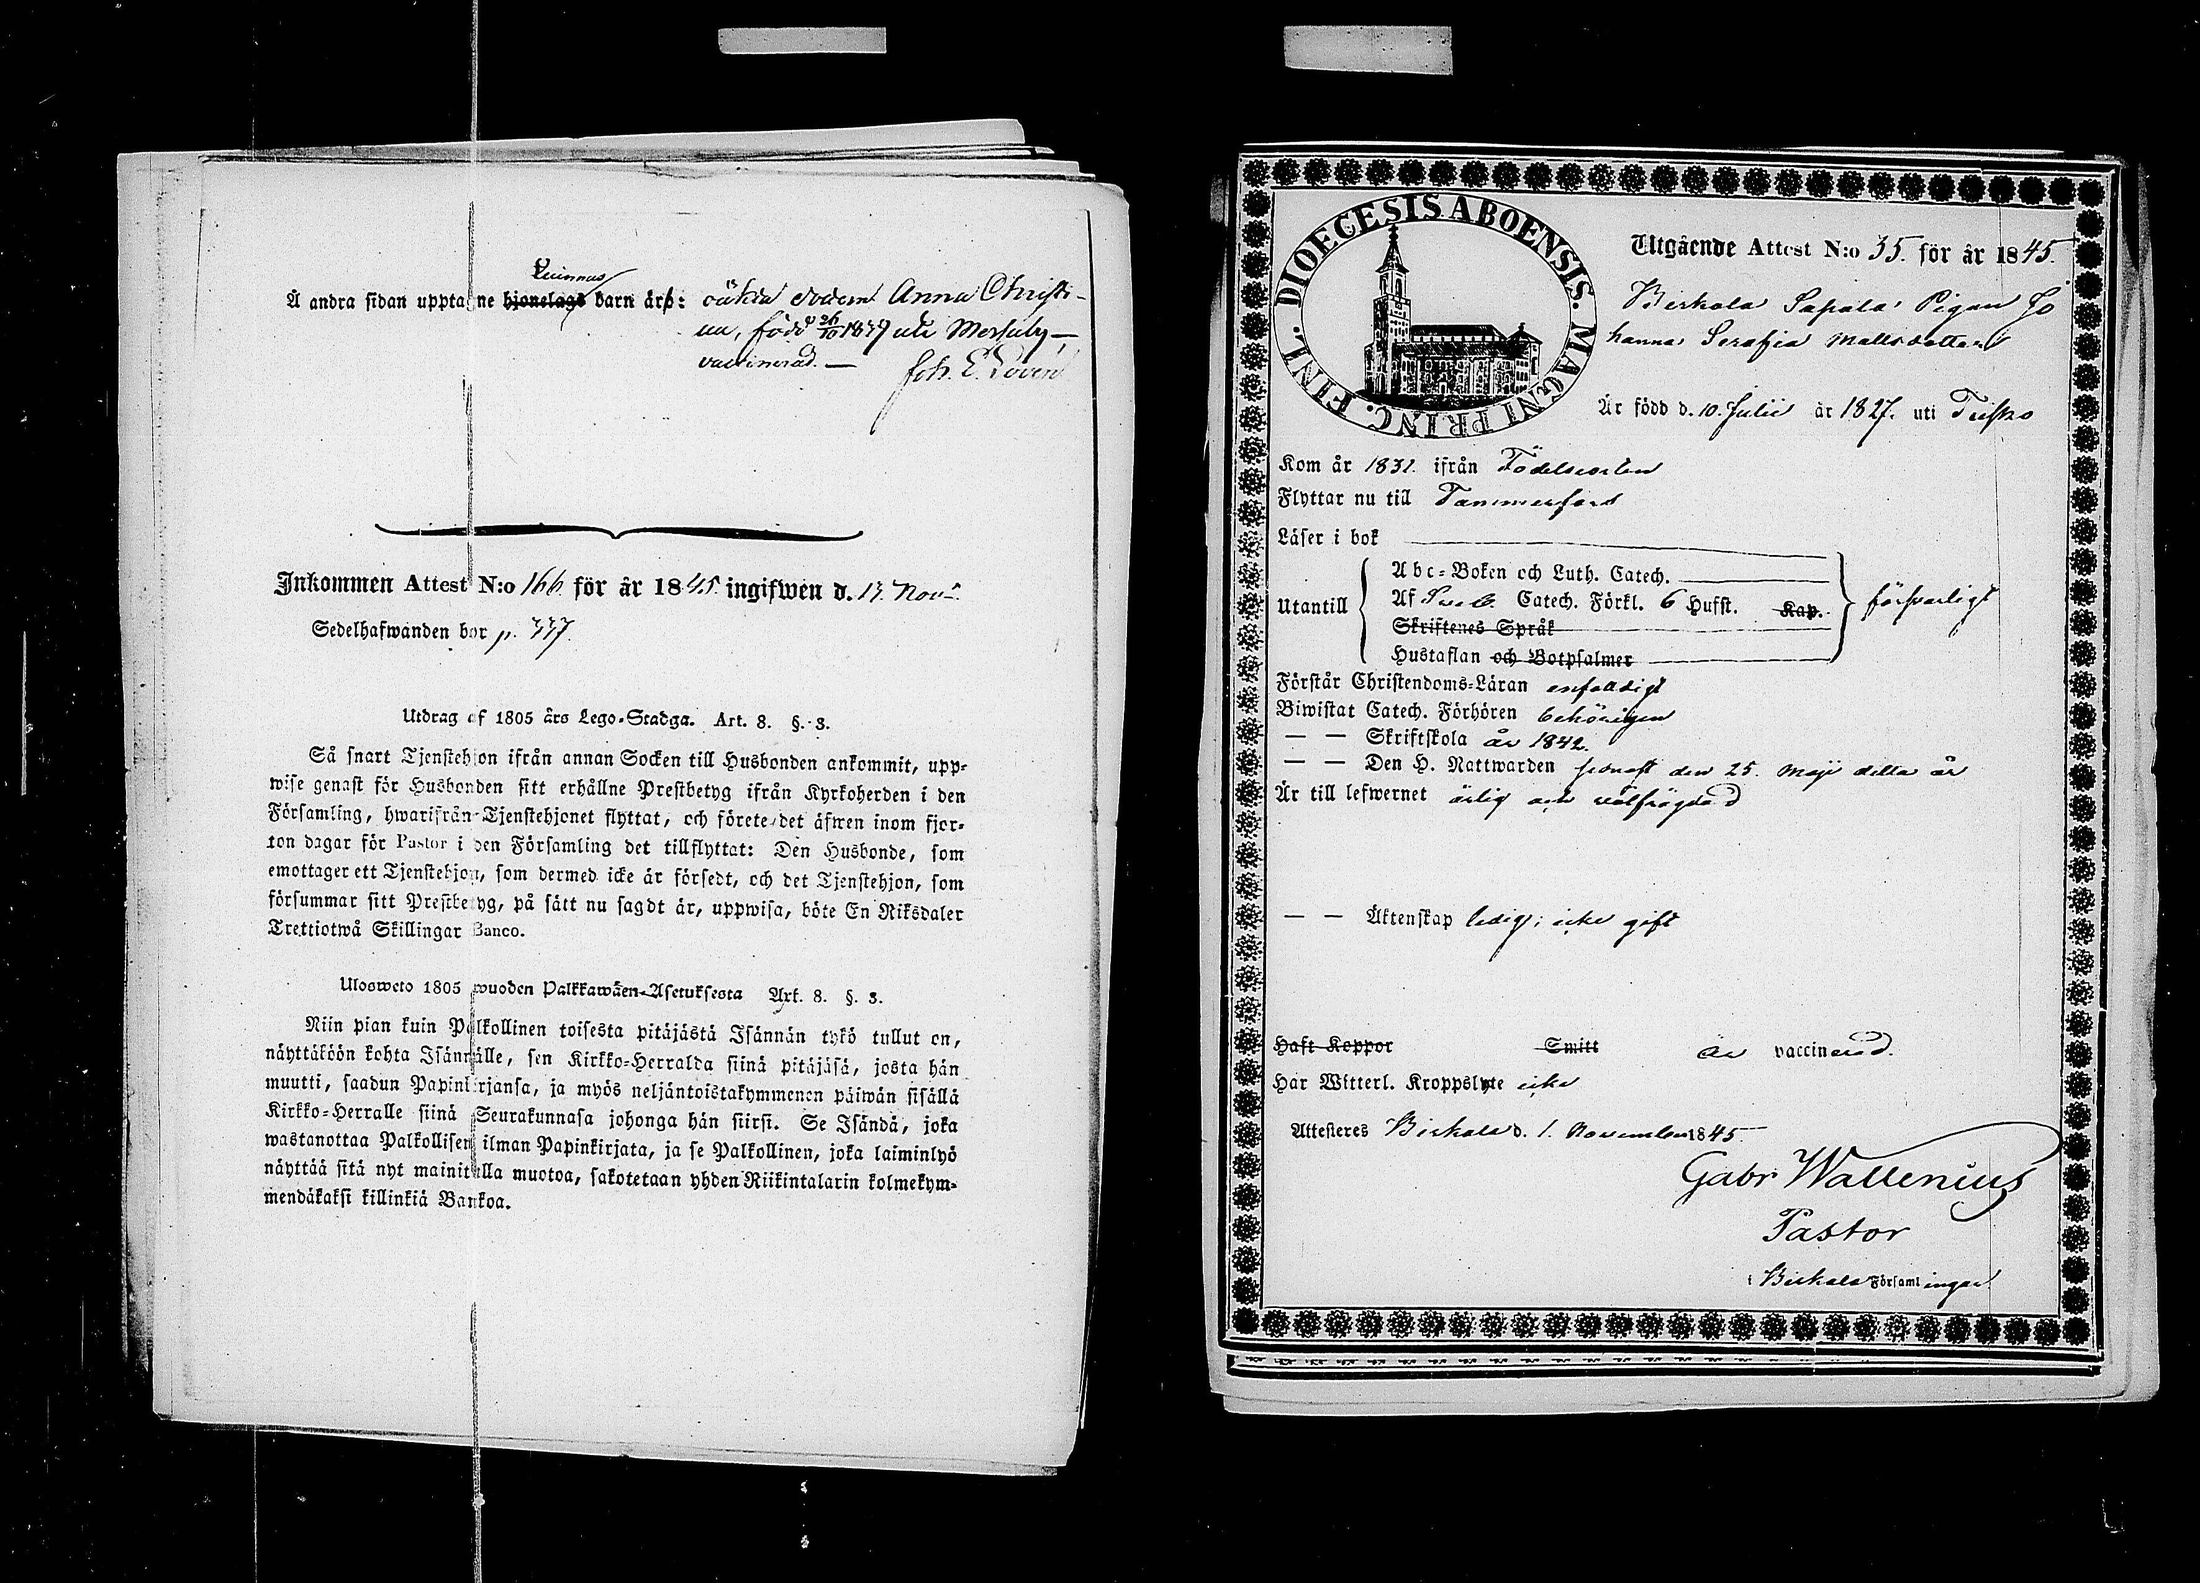 Qvinnas
Å andra sidan upptagne hjonelags barn äro: oäkta dottern Anna Christi-
na, född 26/10 1839 uti Messuby,—
vaccinerad. — Joh. E. Lovén
Inkommen Attest N:o 166 för år 1845 ingifwen d. 17 Nov.
Sedelhafwanden bor p. 337.
Utdrag af 1805 års Lego-Stadga. Art. 8. §. 3.
Så snart Tjenstehjon ifrån annan Socken till Husbonden ankommit, upp-
wise genast för Husbonden sitt erhållne Prestbetyg ifrån Kyrkoherden i den
Församling, hwarifrån Tjenstehjonet flyttat, och förete det äfwen inom fjor-
ton dagar för Pastor i den Församling det tillflyttat: Den Husbonde, som
emottager ett Tjenstehjon, som dermed icke är försedt, och det Tjenstehjon, som
försummar sitt Prestbetyg, på sätt nu sagdt är, uppwisa, böte En Riksdaler
Trettiotwå Skillingar Banco.
Ulosweto 1805 wuoden Palkkawäen-Asetuksesta Art. 8. §. 3.
Niin pian kuin Palkollinen toisesta pitäjästä Isännän tykö tullut on,
näyttäköön kohta Isännälle, sen Kirkko-Herralda siinä pitäjäsä, josta hän
muutti, saadun Papinkirjansa, ja myös neljäntoistakymmenen päiwän sisällä
Kirkko-Herralle siinä Seurakunnasa johonga hän siirsi. Se Isändä, joka
wastanottaa Palkollisen ilman Papinkirjata, ja se Palkollinen, joka laiminlyö
näyttää sitä nyt mainitulla muotoa, sakotetaan yhden Riikintalarin kolmekym-
mendäkaksi killinkiä Bankoa.
DIOECESIS ABOENSIS. MAGNI PRINC. FINL.
Utgående Attest N:o 35. för år 1845.
Birkala Sapala Pigan Jo
hanna Serafia Mattsdotter
Är född d. 10. Julii år 1827. uti Teisko
Kom år 1831. ifrån Födelseorten
Flyttar nu till Tammerfors
Läser i bok
Utantill
Abc-Boken och Luth. Catech.
Af Sveb. Catech. Förkl. 6 Hufst. Kap.
Skriftenes Språk
Hustaflan och Botpsalmer
försvarligt
Förstår Christendoms-Läran enfaldigt
Biwistat Catech. Förhören behörigen
— — Skriftskola år 1842.
— — Den H. Nattwarden senast den 25. Maji detta år
Är till lefwernet ärlig och välfrägdad
— — Äktenskap ledig; icke gift
Haft Koppor Smitt är vaccinerad.
Har Witterl. Kroppslyte icke
Attesteres Birkala d. 1. November 1845
Gabr Wallenius
Pastor
i Birkala Församlingar